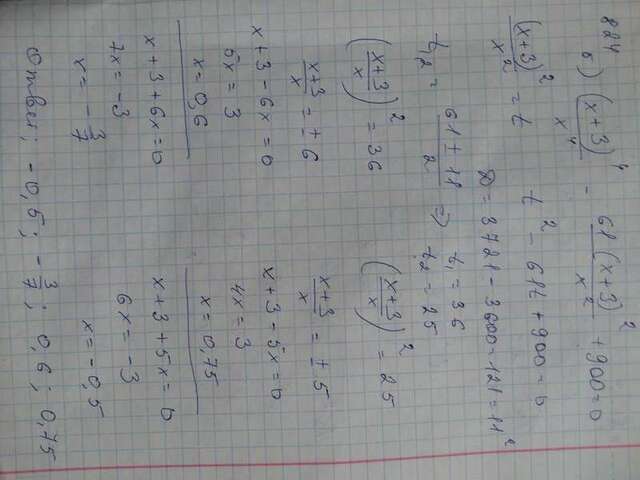 884
б) (x+3)⁴/x⁴ - 61(x+3)²/x² + 900=0
(x+3)²/x² = t   t² - 61t + 900=0
D = 3721 - 3600 = 121 = 11²
t₁,₂ = (61 ± 11)/2 ⇒ t₁ = 36 t₂ = 25
((x+3)/x)² = 36   ((x+3)/x)² = 25
(x+3)/x = ± 6   (x+3)/x = ± 5
x + 3 - 6x = 0   x + 3 - 5x = 0
5x = 3   4x = 3
x = 0,6   x = 0,75
x + 3 + 6x = 0   x + 3 + 5x = 0
7x = -3   6x = -3
x = - 3/7   x = -0,5
Ответ: -0,5; - 3/7; 0,6; 0,75